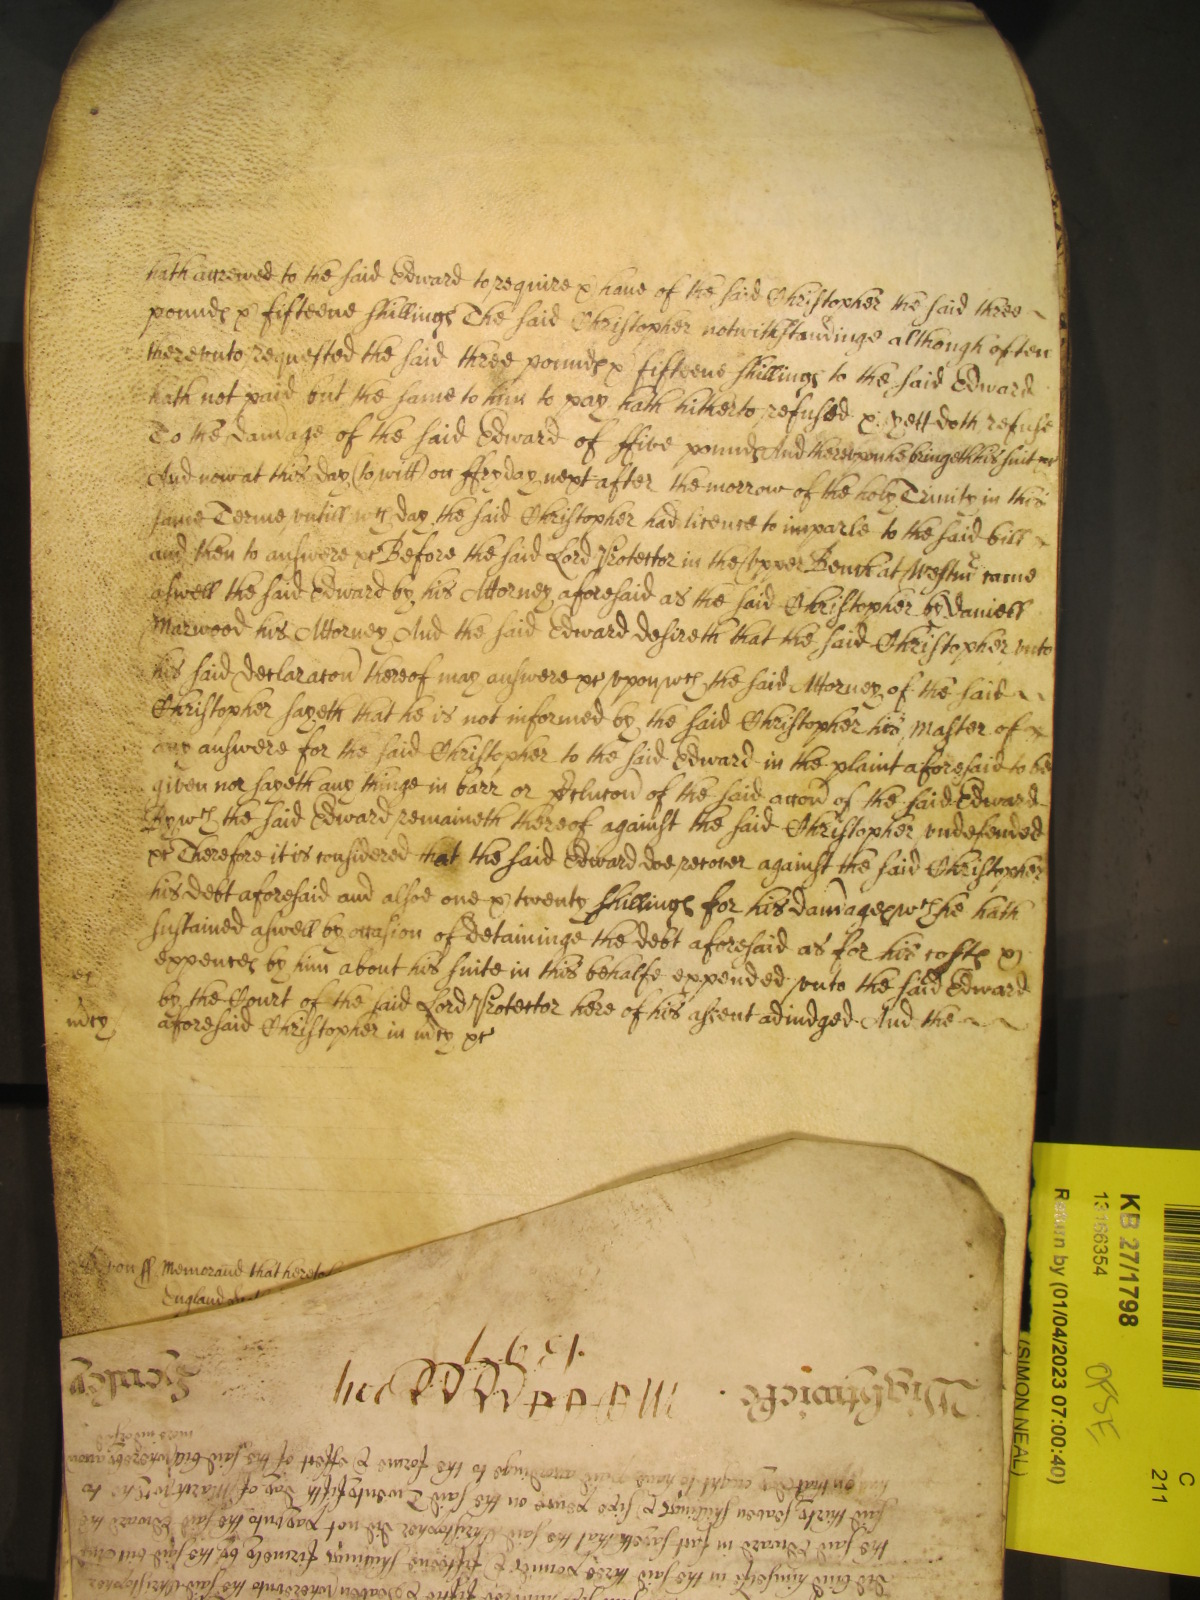 hath accrewed to the said Edward to require & haue of the said Christopher the said three
pounds & fifteene shillings The said Christopher notwithstandinge although often
therevnto requested the said three pounds & fifteene shillings to the said Edward
hath not paid but the same to him to pay hath hitherto refused & yett doth refuse
To the damage of the said Edward of ffive pounds And therevpon he bringeth his suit &c
And now at this day (to witt) on ffryday next after the morrow of the holy Trinity in this
same Terme vntill wch day the said Christopher had licence to imparle to the said bill
and then to answere &c Before the said Lord Protector in the Vpper Bench at Westmr came
aswell the said Edward by his Attorney aforesaid as the said Christopher by Daniell
Marwood his Attorney And the said Edward desireth that the said Christopher vnto
his said declaracon thereof may answere &c vpon wch the said Attorney of the said
Christopher sayeth that he is not informed by the said Christopher his Master of
any answere for the said Christopher to the said Edward in the plaint aforesaid to be
given nor sayeth any thinge in barr or p'clucon of the said accon of the said Edward
By wch the said Edward remaineth thereof against the said Christopher vndefended
&c Therefore it is considered that the said Edward doe recover against the said Christopher
his debt aforesaid and alsoe one & twenty shillings for his damages wch he hath
sustained aswell by occasion of detaininge the debt aforesaid as for his costs &
expences by him about his suite in this behalfe expended vnto the said Edward
by the Court of the said Lord Protector here of his assent adiudged And the
mcy
aforesaid Christopher in mcy &c
ss Memorand that heretofore
England
Wightwicke
1597
did bind himselfe in the said three pounds & fifteene shillings
the said Edward in fact sayeth that the said Christopher did not pay vnto the said Edward the
said thirty seaven shillings & sixe pence on the said Twenty fifth day of March
to the forme & effect of the said bill whereby accon
KB 27/1798
13166354
Return by (01/04/2023 07:00:40)
(SIMON NEAL)
C
211